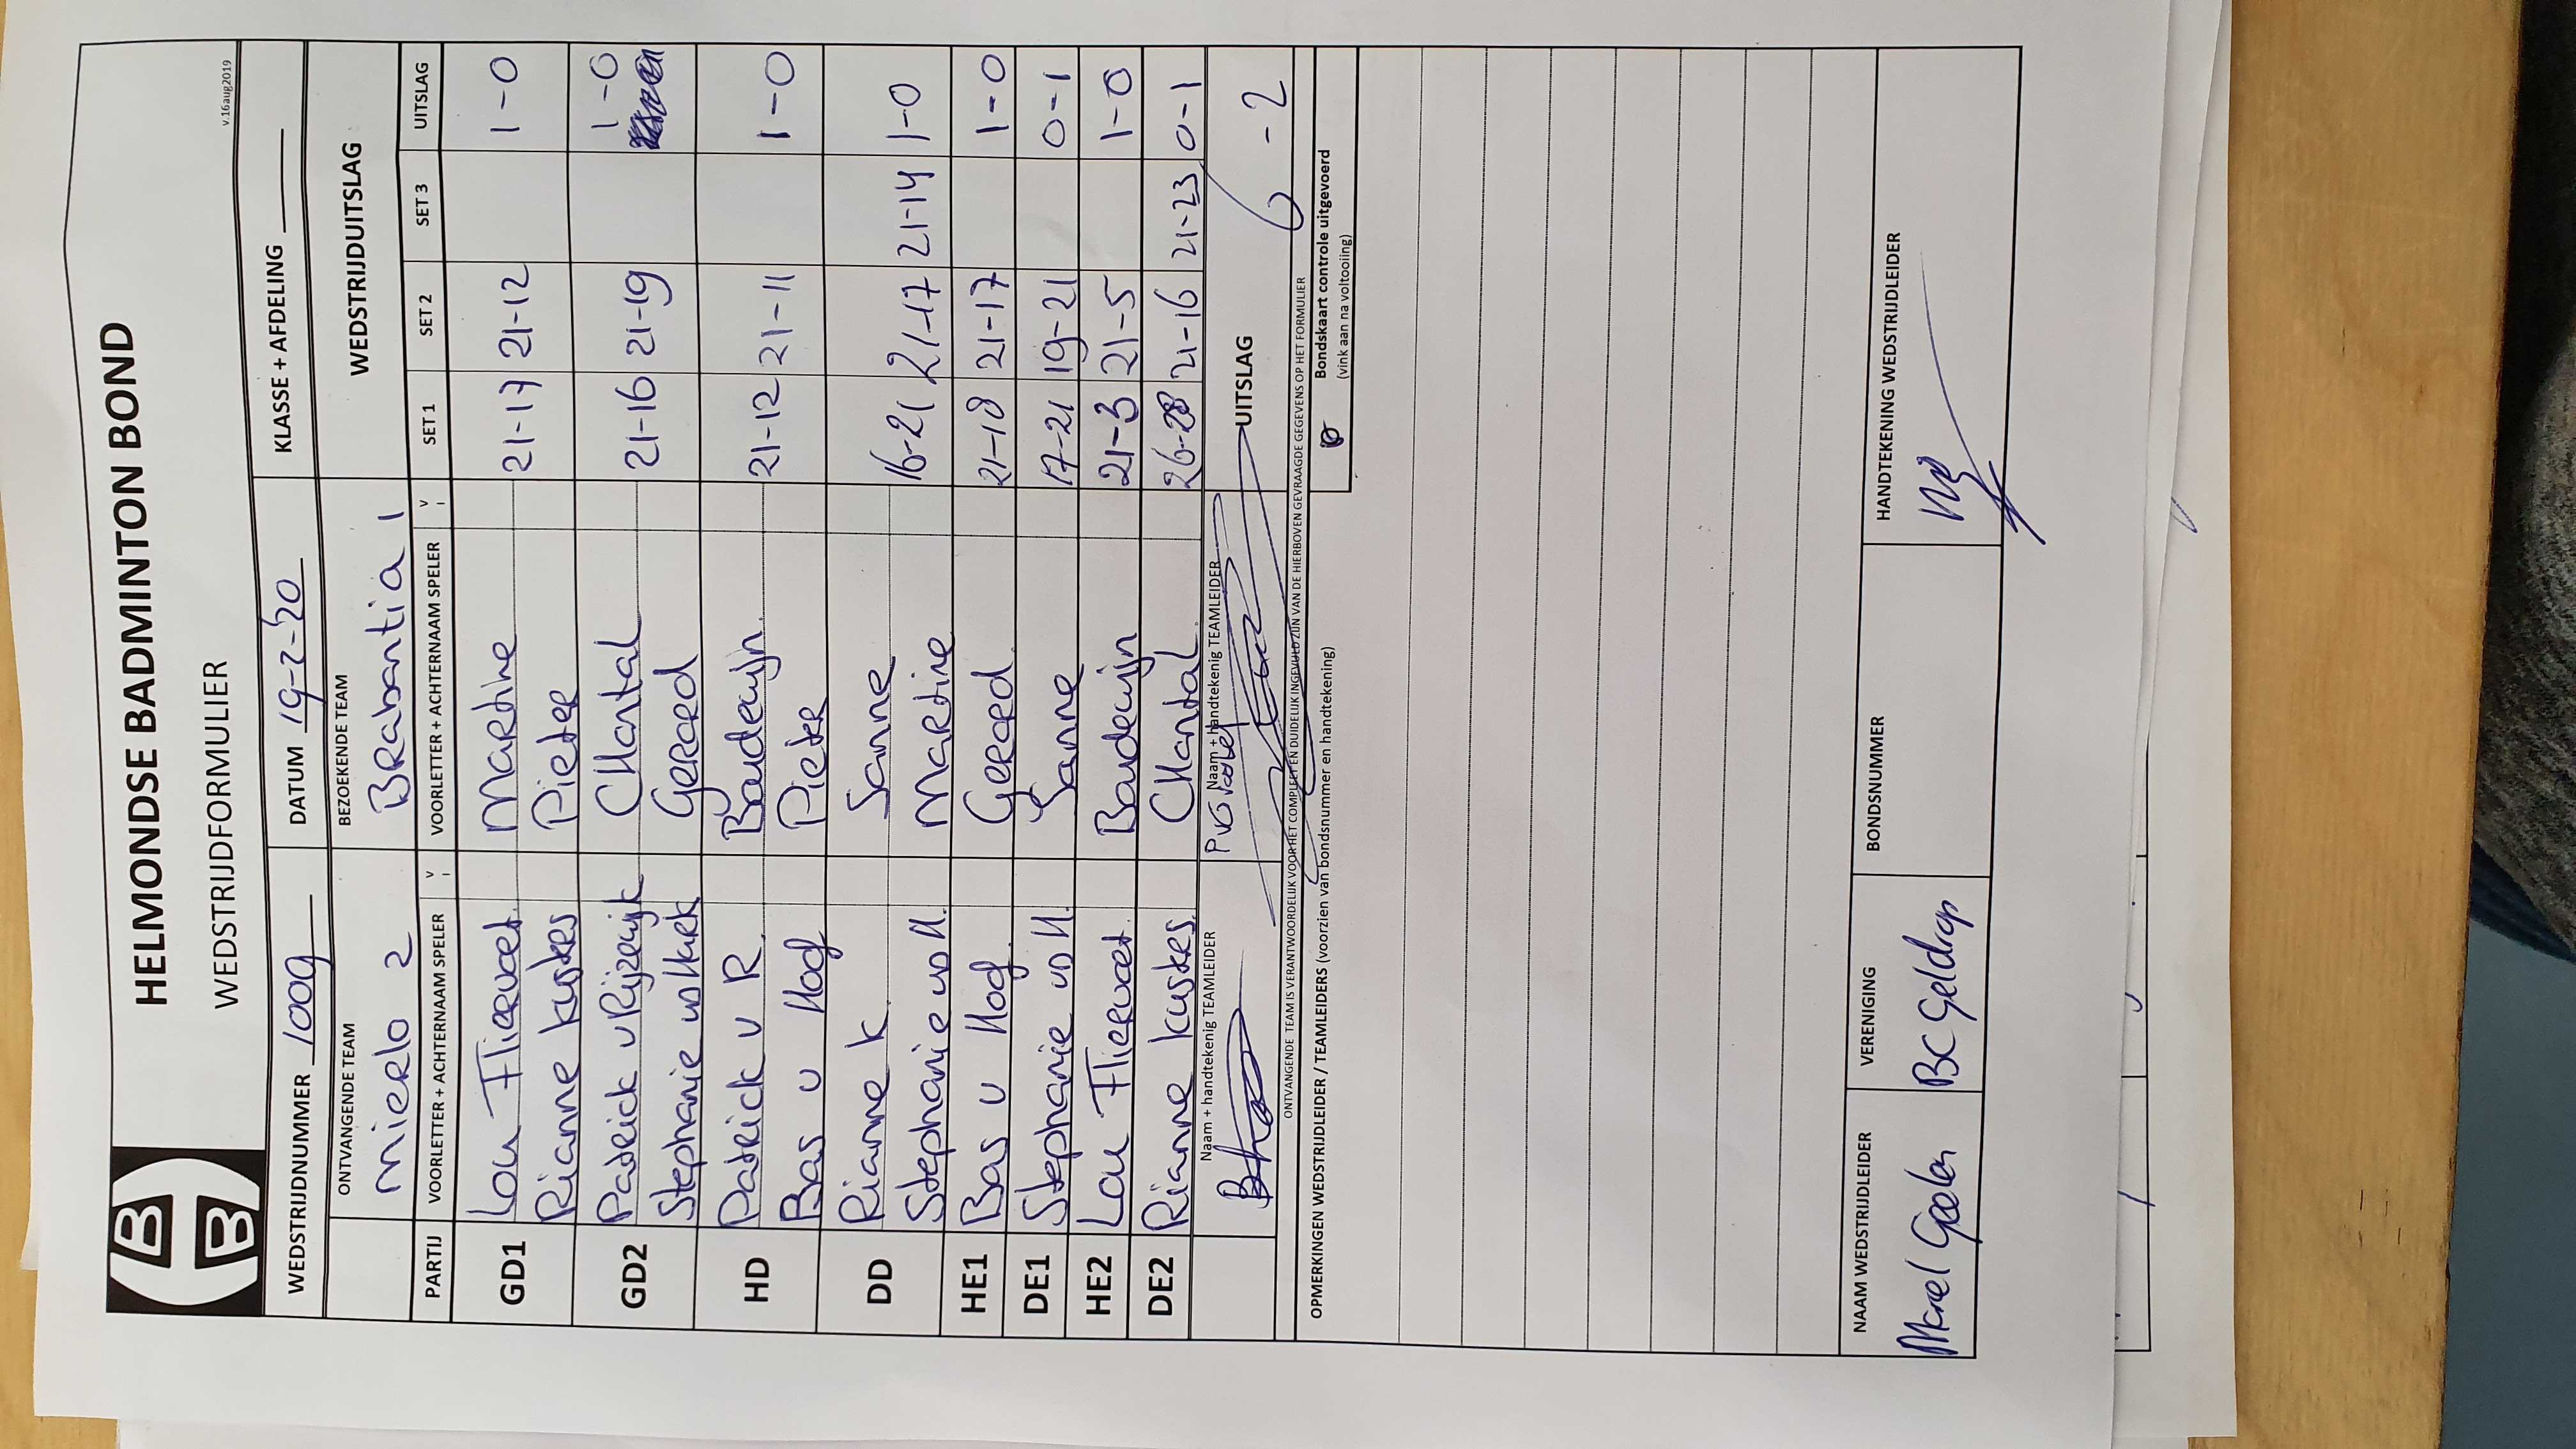 HELMONDSE BADMINTON BOND
WEDSTRIJDFORMULIER
v.16aug2019
WEDSTRIJDNUMMER 1009 DATUM 19-2-'20 KLASSE + AFDELING
ONTVANGENDE TEAM BEZOEKENDE TEAM WEDSTRIJDUITSLAG
Mierlo 2 Brabantia 1
PARTIJ VOORLETTER + ACHTERNAAM SPELER V I VOORLETTER + ACHTERNAAM SPELER V I SET 1 SET 2 SET 3 UITSLAG
GD1 Lou Fliervoet Martine 21-17 21-12 1-0
Rianne Kusters Pieter
GD2 Patrick v Rijzewijk Chantal 21-16 21-19 1-0
Stephanie vd Hurk Gerard
HD Patrick v R. Boudewijn 21-12 21-11 1-0
Bas v Hoof Pieter
DD Rianne K Sanne 16-21 21-17 21-14 1-0
Stephanie vd H. Martine
HE1 Bas v Hoof Gerard 21-18 21-17 1-0
DE1 Stephanie vd H. Sanne 17-21 19-21 0-1
HE2 Lou Fliervoet. Boudewijn 21-3 21-5 1-0
DE2 Rianne Kusters. Chantal 26-28 21-16 21-23 0-1
Naam + handtekenig TEAMLEIDER Naam + handtekenig TEAMLEIDER UITSLAG 6-2
ONTVANGENDE TEAM IS VERANTWOORDELIJK VOOR HET COMPLEET EN DUIDELIJK INGEVULD ZIJN VAN DE HIERBOVEN GEVRAAGDE GEGEVENS OP HET FORMULIER
OPMERKINGEN WEDSTRIJDLEIDER / TEAMLEIDERS (voorzien van bondsnummer en handtekening)
Bondskaart controle uitgevoerd
(vink aan na voltooiing)
NAAM WEDSTRIJDLEIDER VERENIGING BONDSNUMMER HANDTEKENING WEDSTRIJDLEIDER
BC Geldrop